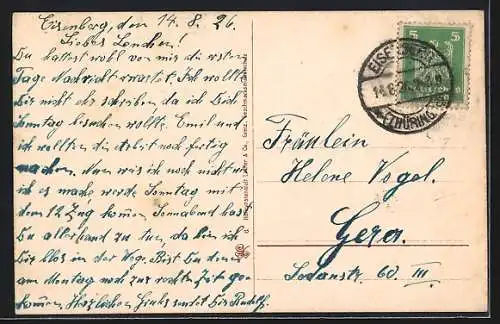 Eisenberg, den 14.8.26.
Liebes Lenchen!
Du hattest wohl von mir die ersten
Tage Nachricht erwartet. Ich wollte
Dir nicht erst schreiben da ich Dich
Sonntag besuchen wollte. Emil und
ich wollten die Arbeit noch fertig
machen. Nun wir ich noch nicht
ich es mache werde Sonntag mit
dem 12 Zug kommen Sonnabend hast
Du allerhand zu tun, da bin ich
Dir blos in der Wege. Bist Du denn
am Montag noch zur rechten Zeit ge-
kommen. Herzlichen Gruß sendet Dir Rudolf.
5 5
EISENBERG
14.8.26
(THÜRING
Fräulein
Helene Vogel.
Gera.
Sedanstr. 60. III.